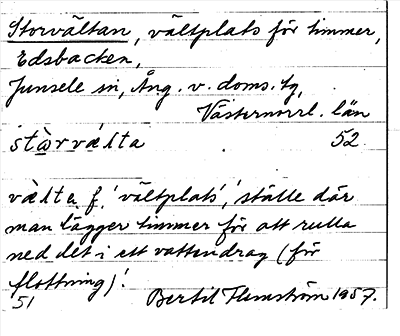 Storvältan, vältplats för timmer,
Edsbacken,
Junsele sn, Ång. v. doms. tg,
Västernorrl. län
stàrvælta 52.
vælta f. 'vältplats', 'ställe där
man lägger timmer för att rulla
ned det i ett vattendrag (för
flottning)'.
51 Bertil Flemström 1957.